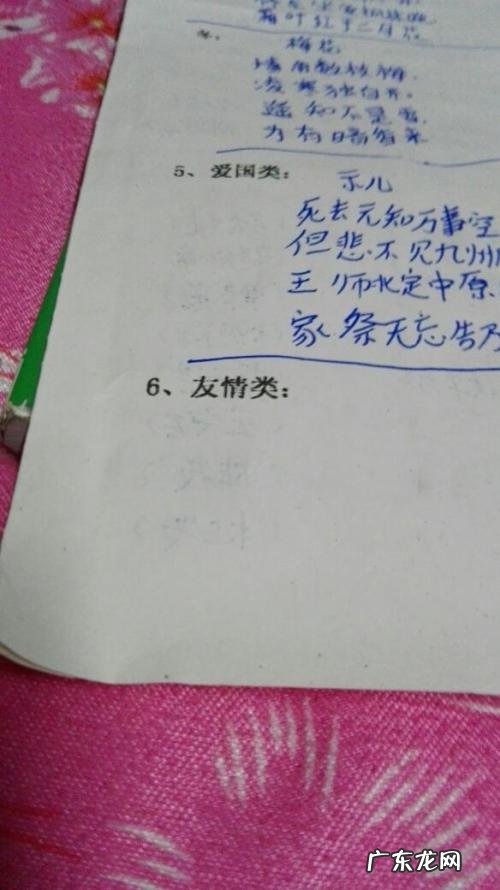 霜叶红于二月花
冬、
梅花
墙角数枝梅，
凌寒独自开。
遥知不是雪，
为有暗香来
5、爱国类：
示儿
死去元知万事空
但悲不见九州
王师北定中原
家祭无忘告乃
6、友情类：
广东龙网